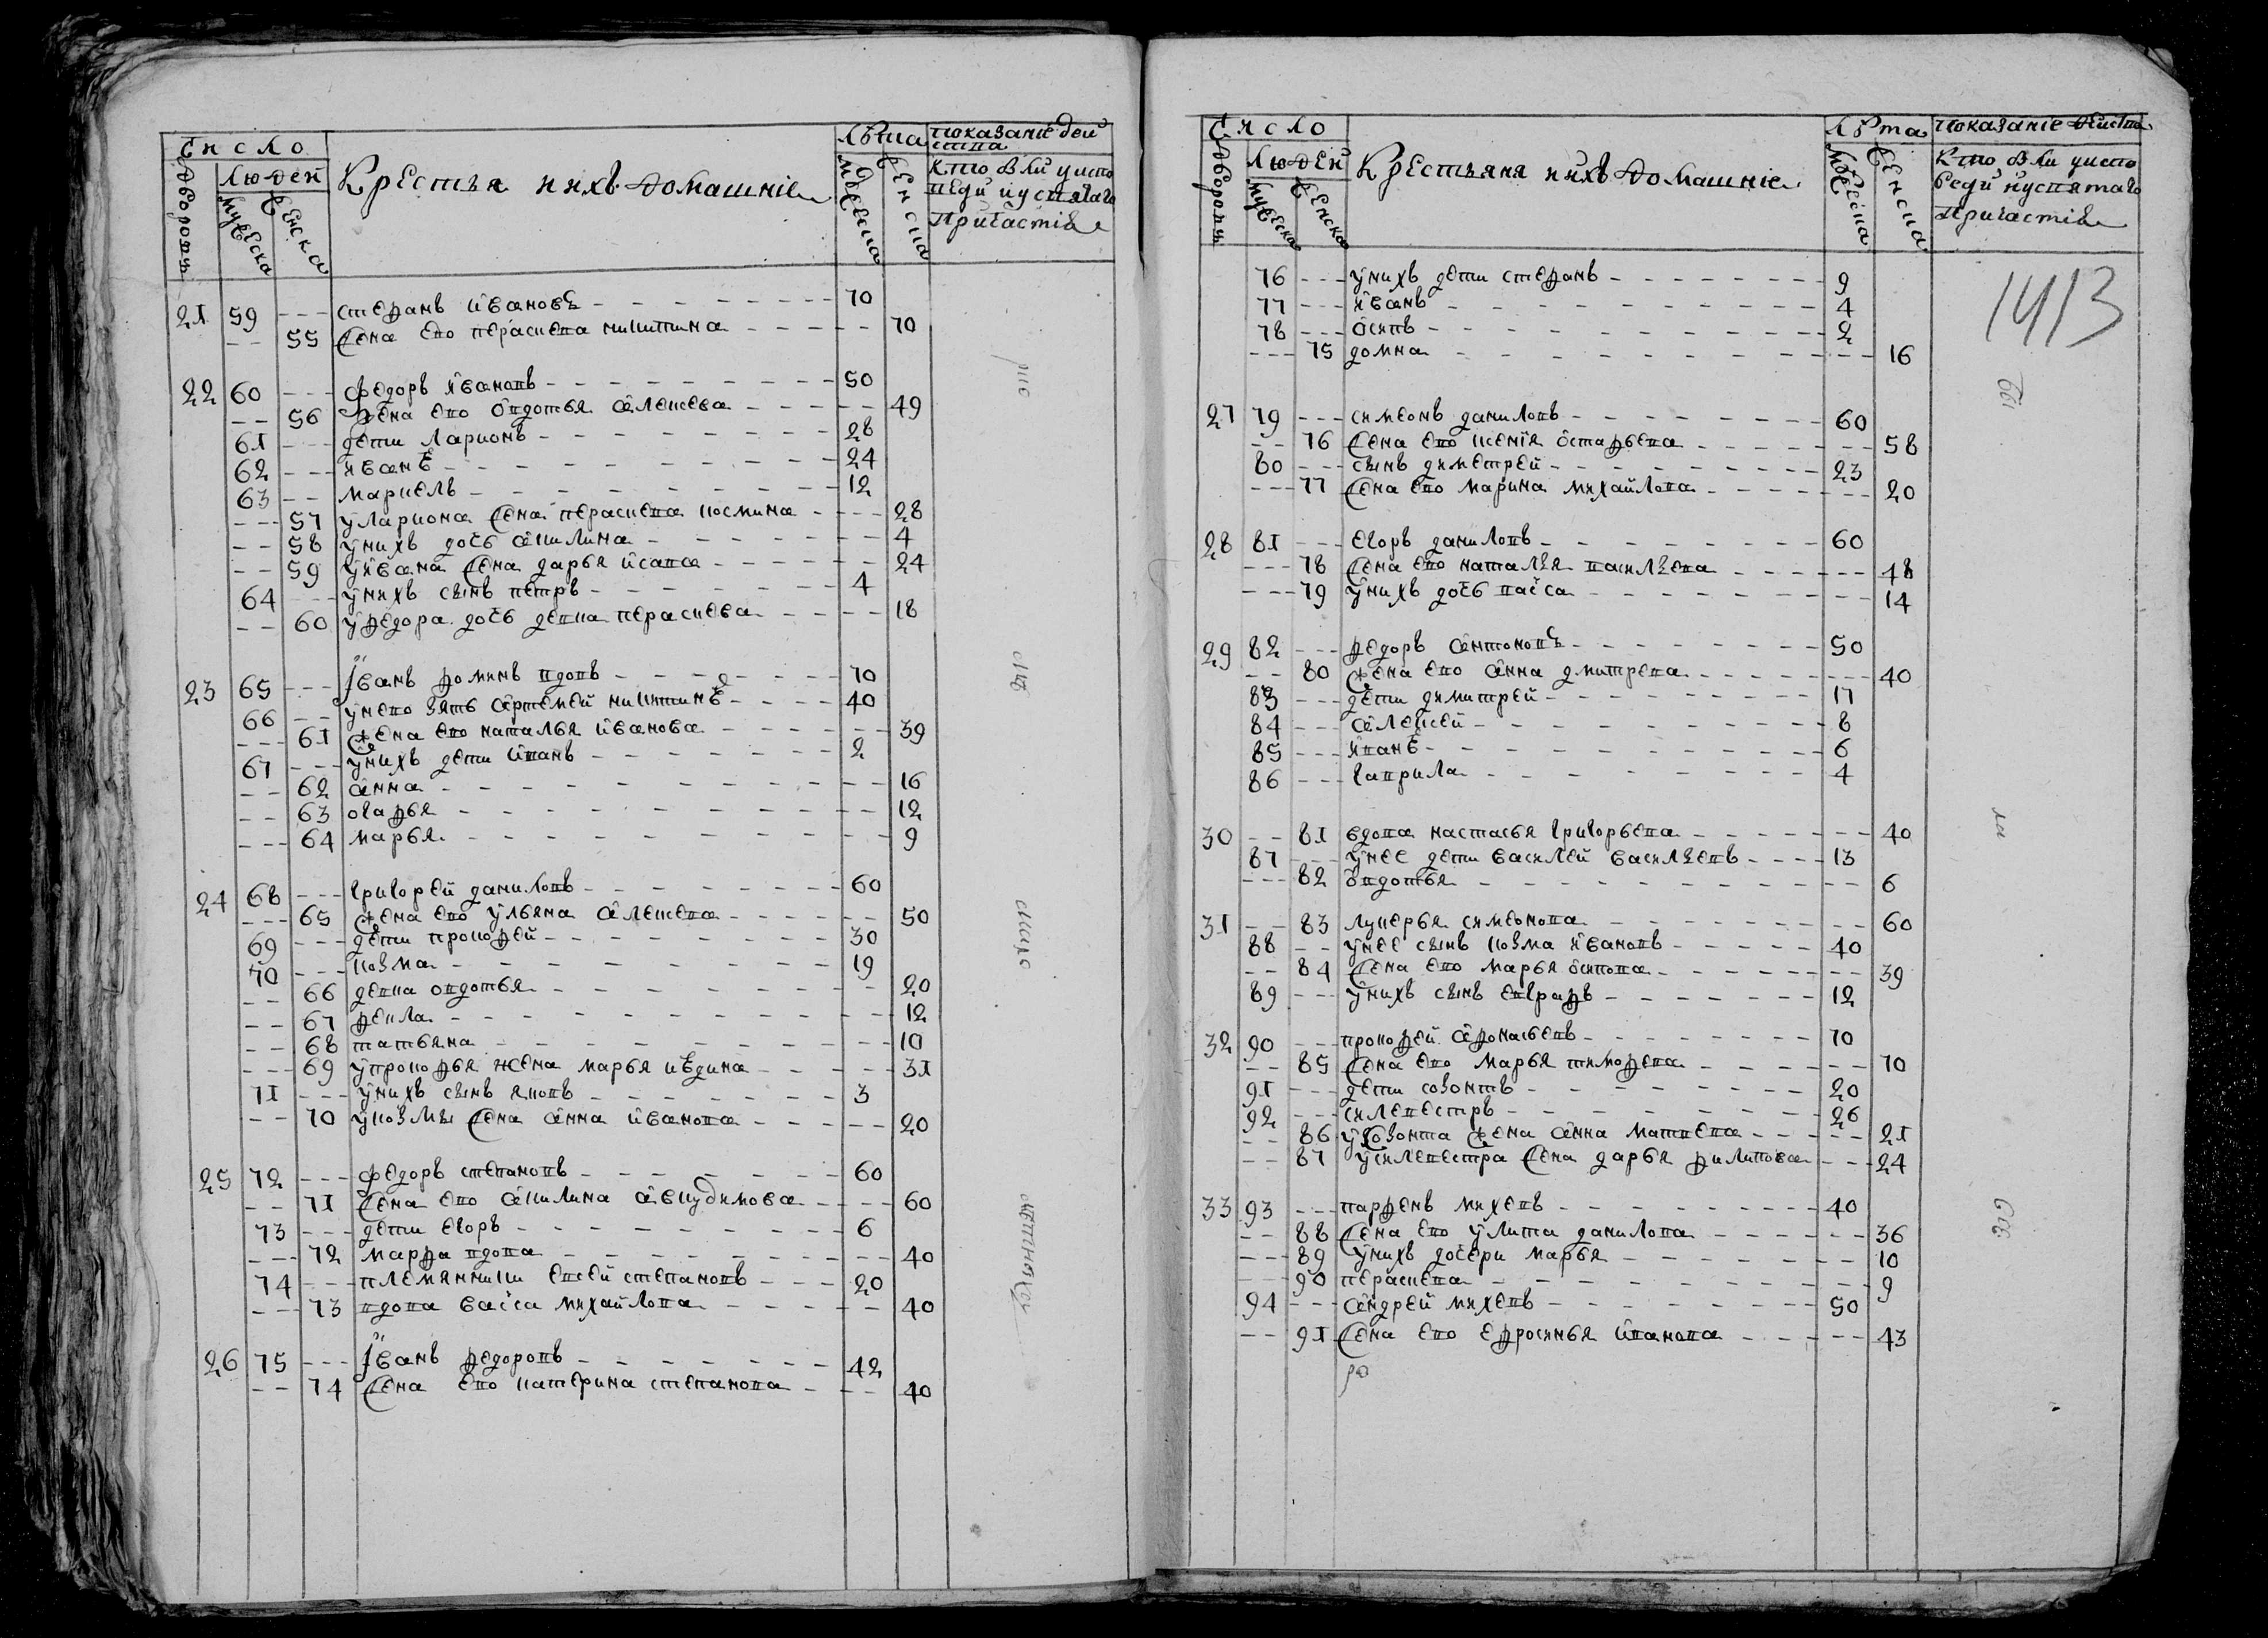 Число
Людей
дворовъ
мужеска
женска
Крестьяня ихъ домашніе
Лѣта
мужеска
женска
показаніе действа
Кто былъ у испо
веди и святаго
Причастія
21 59 --- стефанъ ивановъ - 70
-- 55 жена ево парасковья никитина - 70
22 60 --- федоръ ивановъ - 50
-- 56 жена ево овдотья алексеева - 49
61 --- дети ларионъ - 28
62 --- иванъ - 24
63 -- маркелъ - 12
--- 57 улариона жена пераскева космина - 28
-- 58 унихъ дочь акилина - 4
-- 59 уивана жена дарья исаева - 24
64 --- унихъ сынъ петръ - 4
-- 60 уфедора дочь девка пераскева - 18
23 65 --- Іванъ фоминъ вдовъ - 70
66 -- унево зять артемей никитинъ - 40
--- 61 жена ево наталья иванова - 39
67 --- унихъ дети иванъ - 2
-- 62 анна - 16
-- 63 огафья - 12
--- 64 марья - 9
24 68 --- григорей даниловъ - 60
--- 65 жена ево ульяна алексева - 50
69 --- дети прокофей - 30
70 --- козма - 19
-- 66 девка овдотья - 20
-- 67 фекла - 12
-- 68 татьяна - 10
--- 69 упрокофья жена марья - 31
71 --- унихъ сынъ яковъ - 3
-- 70 укозмы жена анна иванова - 20
25 72 --- федоръ степановъ - 60
-- 71 жена ево акилина авкудимова - 60
73 --- дети егоръ - 6
--- 72 марфа вдова - 40
74 --- племянники евсей степановъ - 20
-- 73 вдова васса михайлова - 40
26 75 --- Іванъ федоровъ - 42
-- 74 жена ево катерина степанова - 40
Число
Людей
дворовъ
мужеска
женска
Крестьяня ихъ домашніе
Лѣта
мужеска
женска
показаніе действа
Кто былъ у испо
веди и святаго
Причастія
1413
76 --- унихъ дети стефанъ - 9
77 --- иванъ - 4
78 --- осипъ - 2
--- 75 домна - 16
27 79 --- симеонъ даниловъ - 60
-- 76 жена ево ксения остафьева - 58
80 --- сынъ диметрей - 23
--- 77 жена ево марина михайлова - 20
28 81 --- егоръ даниловъ - 60
--- 78 жена ево наталья васильева - 48
--- 79 унихъ дочь васса - 14
29 82 --- федоръ антоновъ - 50
-- 80 жена ево анна дмитрева - 40
83 --- дети димитрей - 17
84 --- алексей - 8
85 --- иванъ - 6
86 --- гаврила - 4
30 -- 81 вдова настасья григорьева - 40
87 --- унее дети василей васильевъ - 13
--- 82 овдотья - 6
31 -- 83 лукерья симеонова - 60
88 -- унее сынъ козма ивановъ - 40
-- 84 жена ево марья осипова - 39
89 --- унихъ сынъ евграфъ - 12
32 90 --- прокофей афонасьевъ - 70
-- 85 жена ево марья тимофева - 70
91 --- дети созонтъ - 20
92 --- силевестръ - 26
-- 86 усозонта жена анна матвева - 21
-- 87 усилевестра жена дарья филипова - 24
33 93 --- парфенъ михевъ - 40
-- 88 жена ево улита данилова - 36
--- 89 унихъ дочери марья - 10
--- 90 пераскева - 9
94 --- андрей михевъ - 50
-- 91 жена ево ефросинья иванова - 43